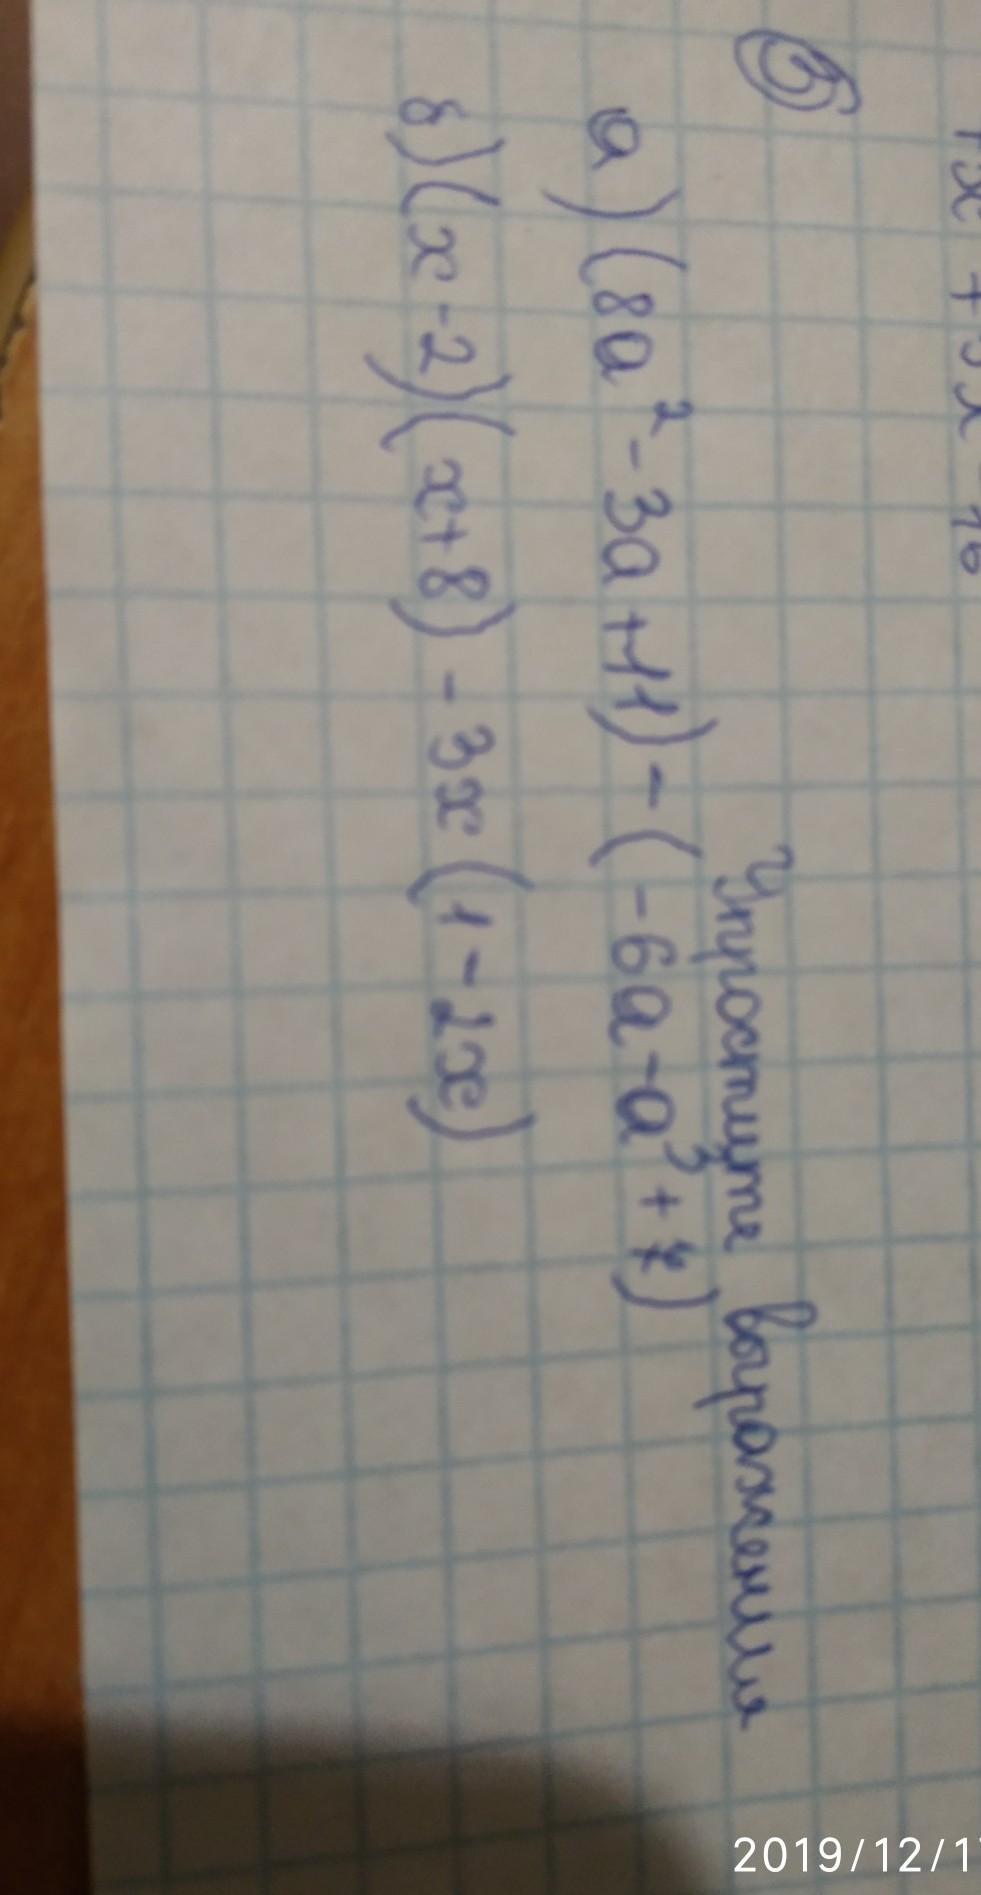 Упростите выражения
а) (8a² - 3a + 11) - (-6a - a³ + 7)
б) (x - 2)(x + 8) - 3x (1 - 2x)
2019/12/1